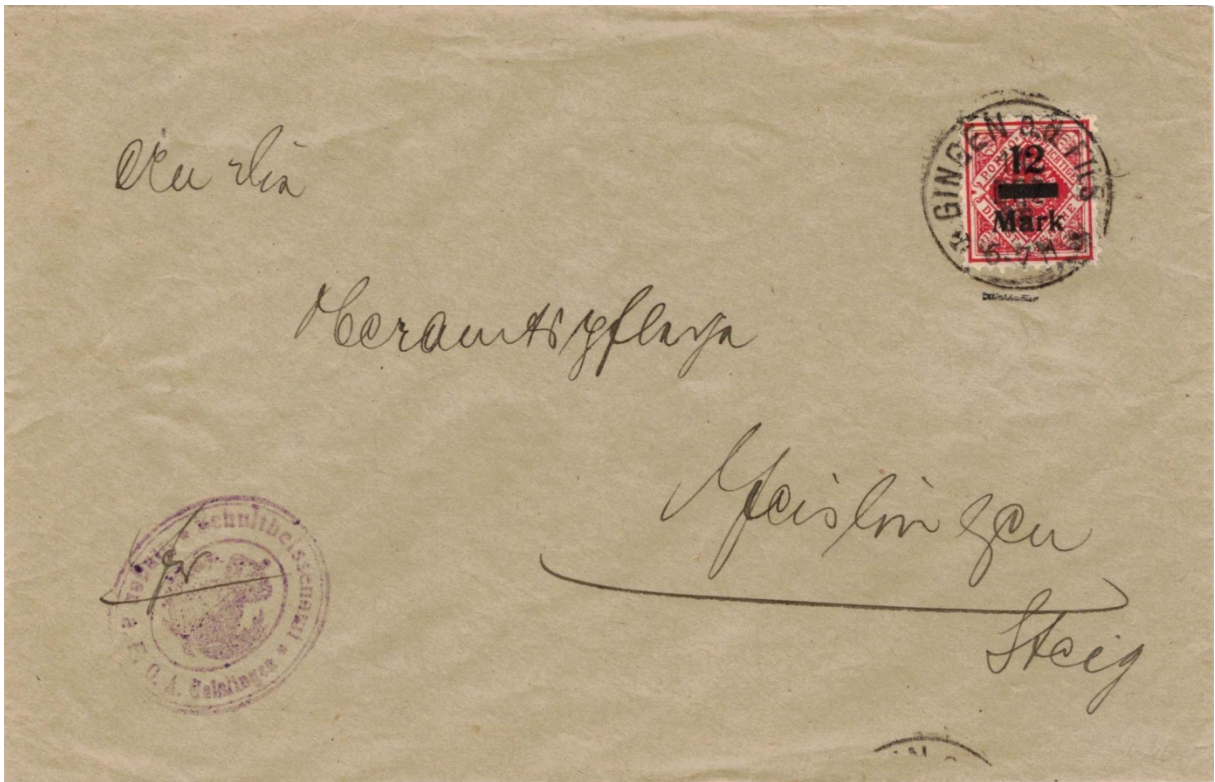 An die
Oberamtspflege
Geislingen
Steig
GINGEN a.d. FILS
5-7N
12
Mark
Schultheissenamt
a F. O. A. Geislingen